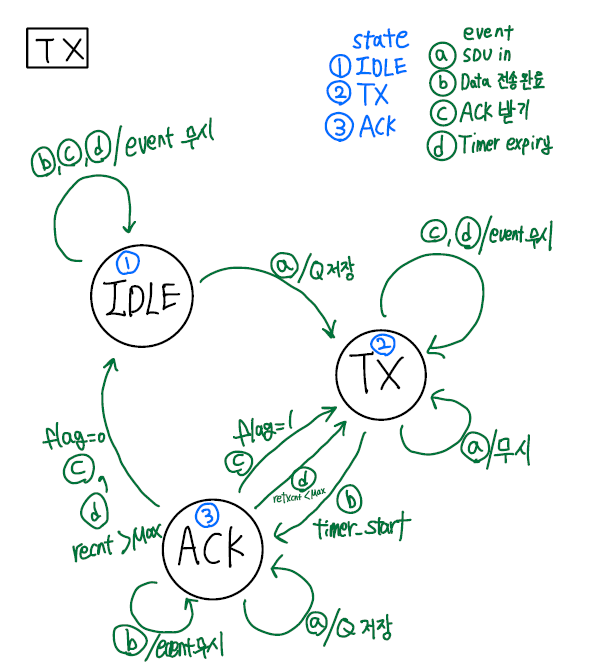 TX
state
① IDLE
② TX
③ ACK
event
ⓐ SDU in
ⓑ Data 전송완료
ⓒ ACK 받기
ⓓ Timer expiry
ⓑ,ⓒ,ⓓ/event 무시
①
IDLE
ⓐ/Q 저장
ⓒ,ⓓ/event 무시
②
TX
ⓐ/무시
flag=0
ⓒ,
ⓓ
recnt >Max
flag=1
ⓒ
ⓓ
retxcnt<Max
ⓑ
timer_start
③
ACK
ⓑ/event무시
ⓐ/Q 저장